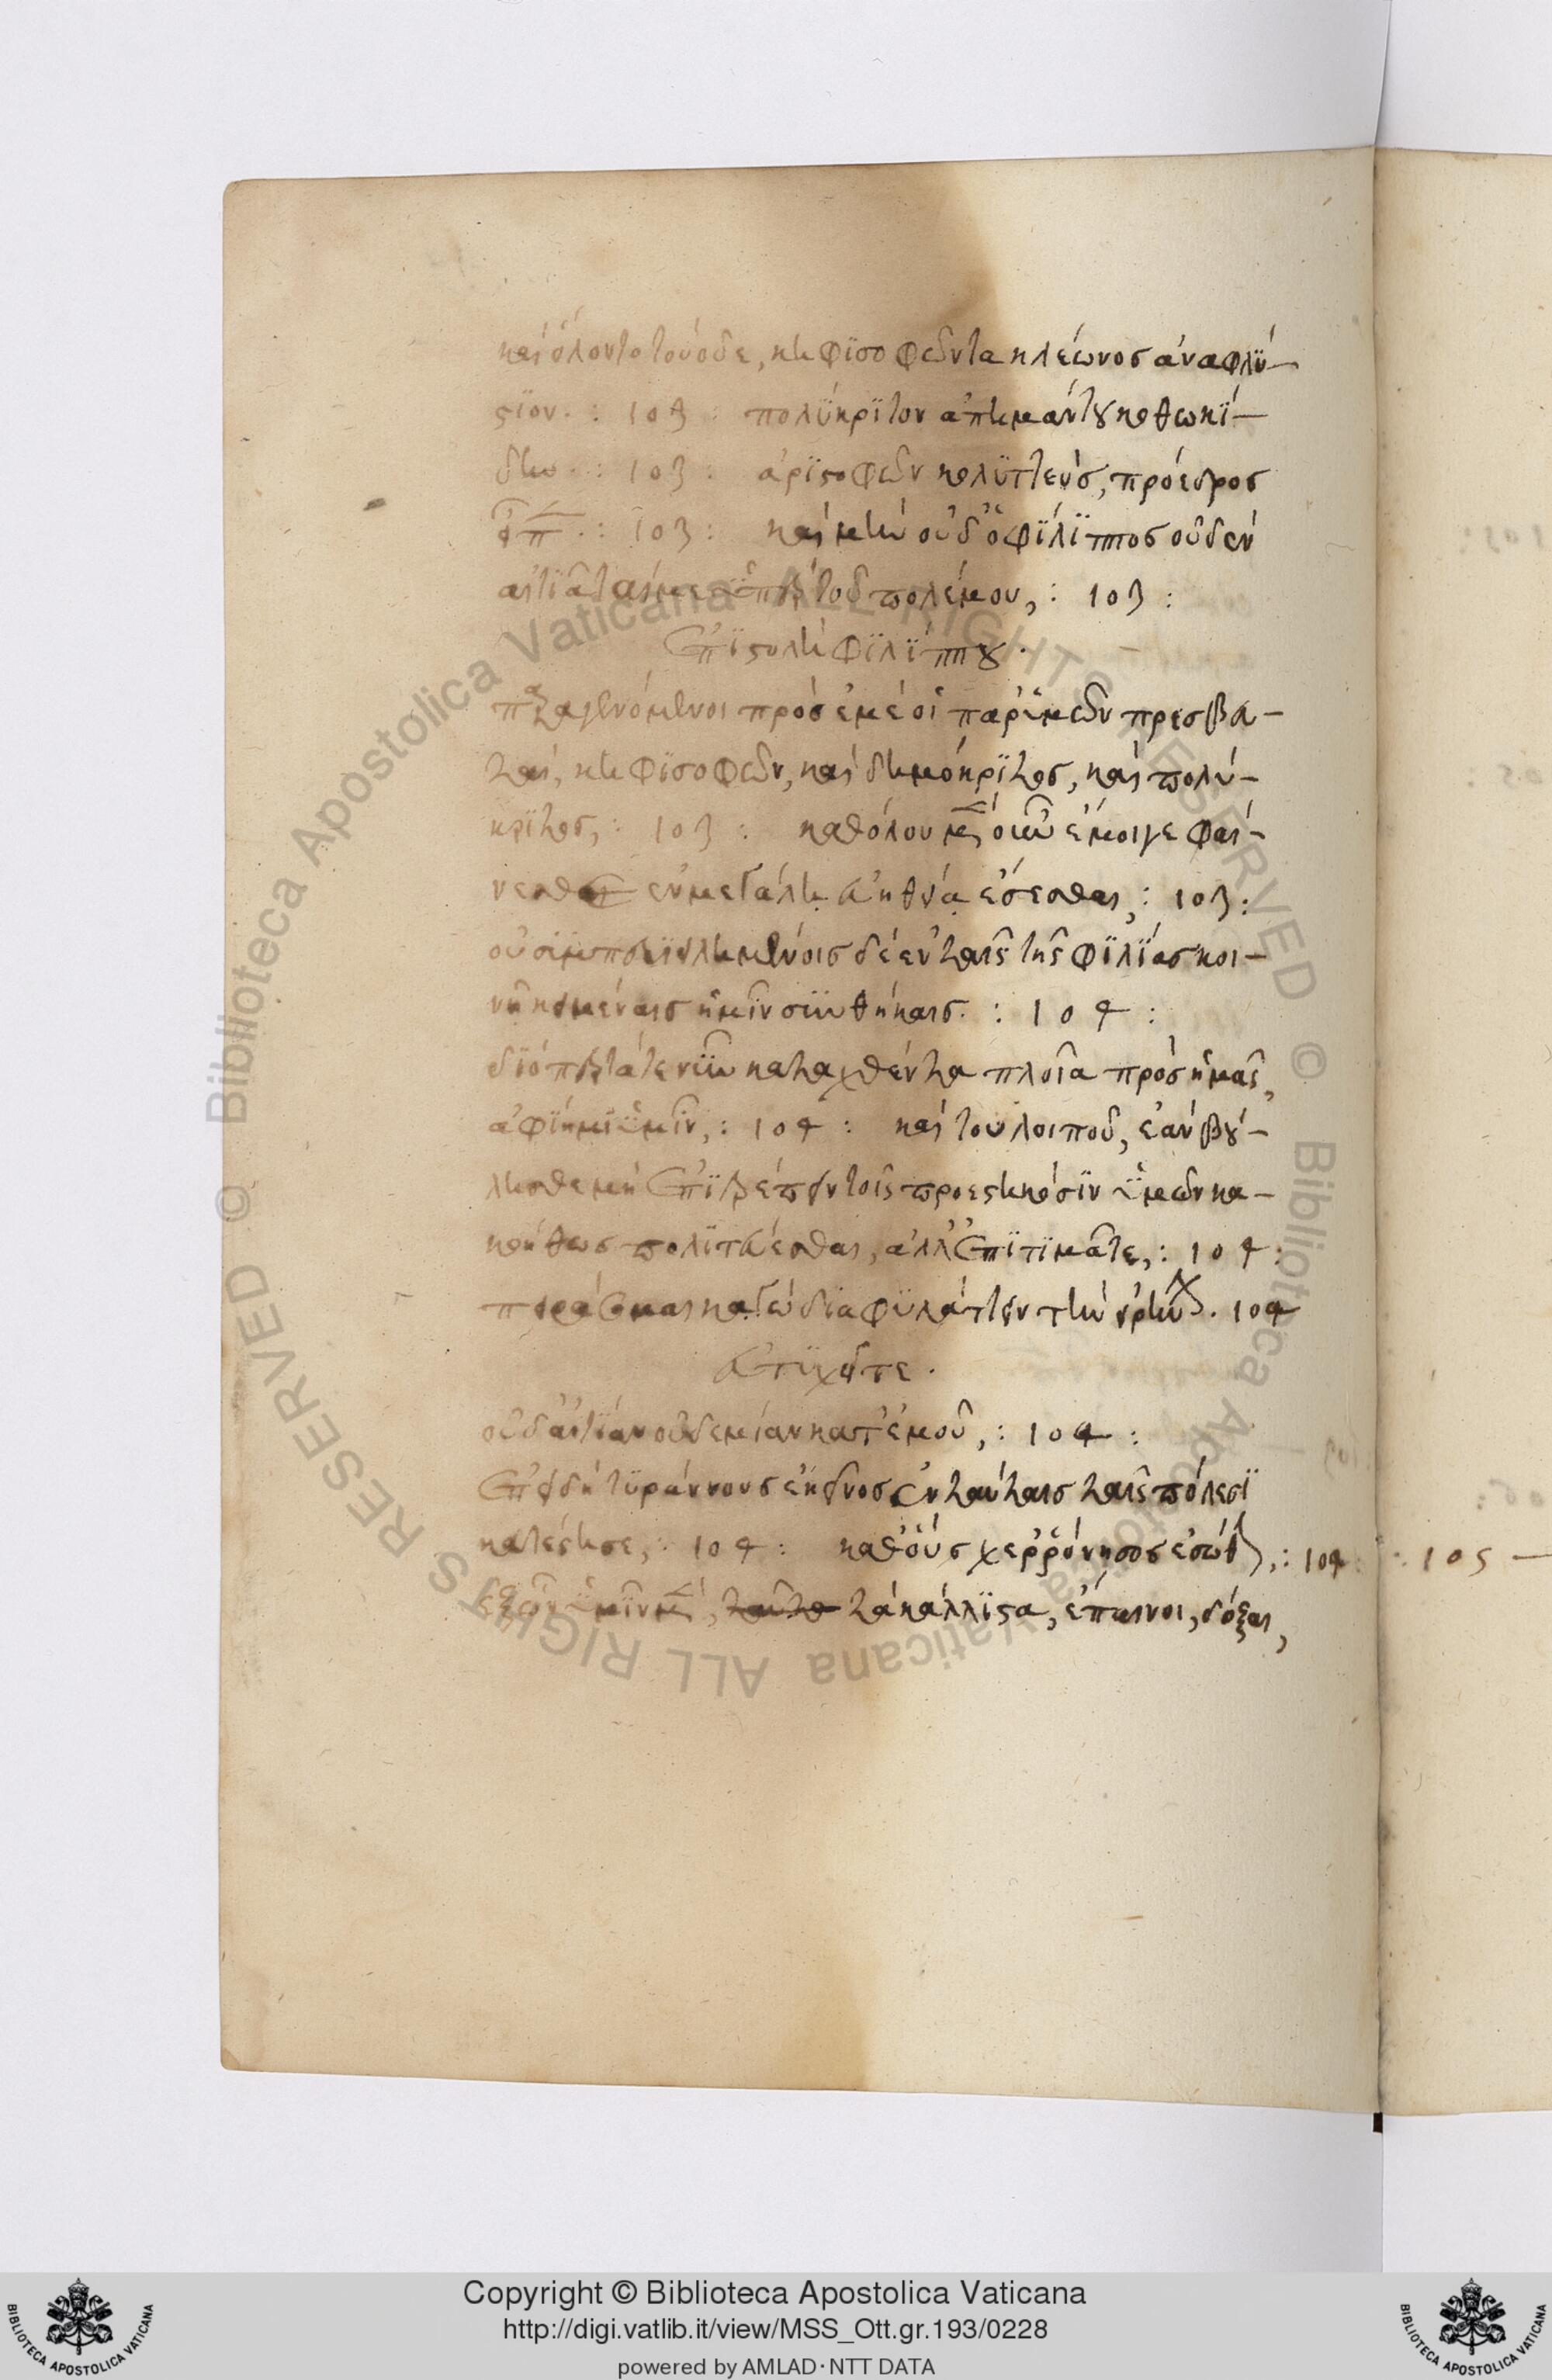 καὶ ὅλοντο τούσδε, κηφισοφῶντα κλέωνοσ ἀναφλύ-
στιον. : 103 : πολύκριτον ἀπημάντου κοθωκί-
δην. : 103 : ἀριστοφῶν κολυττεύσ, πρόεδροσ
εἶπ . : 103 : καὶ μὴν οὐδ' ὁ φίλιπποσ οὐδὲν
αἰτιᾶταί με ὑπὲρ τοῦ πολέμου, : 103 :
ἐπιστολὴ φιλίππου.
παραγενόμενοι πρὸσ ἐμὲ οἱ παρ' ὑμῶν πρεσβευ-
ταὶ, κηφισοφῶν, καὶ δημόκριτοσ, καὶ πολύ-
κριτοσ, : 103 : καθόλου μὲν οὖν ἔμοιγε φαί-
νεσθε ἐν μεγάλῃ εὐηθείᾳ ἔσεσθαι, : 103 :
οὐ συμπεριειλημμένοισ δὲ ἐν ταῖς τῆς φιλίασ κοι-
νῇ κειμέναισ ἡμῖν συνθήκαισ. : 104 :
διόπερ τά τε νῦν καταχθέντα πλοῖα πρὸσ ἡμᾶς,
ἀφίημι ὑμῖν, : 104 : καὶ τοῦ λοιποῦ, ἐὰν βού-
λησθε μὴ ἐπιτρέπειν τοῖς προεστηκόσιν ὑμῶν κα-
κοήθωσ πολιτεύεσθαι, ἀλλ' ἐπιτιμᾶτε, : 104 :
πειράσομαι κἀγὼ διαφυλάττειν τὴν εἰρήνην. 104
εὐτυχεῖτε.
οὐδ' αἰτίαν οὐδεμίαν κατ' ἐμοῦ, : 104 :
ἐπειδὴ τυράννουσ ἐκεῖνοσ ἐν ταύταισ ταῖς πόλεσι
κατέστησε, : 104 : καθ' οὓσ χερρόνησοσ ἐσώθη, : 104 : : 105 —
ἐξ ὧν ὑμῖν μὲν, τὰ κάλλιστα, ἔπαινοι, δόξαι,
Copyright © Biblioteca Apostolica Vaticana
http://digi.vatlib.it/view/MSS_Ott.gr.193/0228
powered by AMLAD·NTT DATA